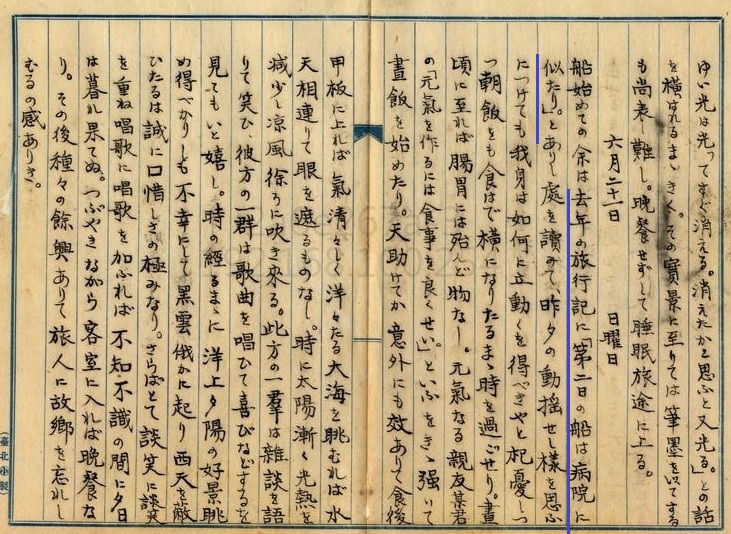 ゆい光は光ってすぐ消える。消えたかと思ふと又光る。」との話
を横はれるまゝきく。その實景に至りては筆墨を以てする
も尚表し難し。晩餐せずして睡眠旅途に上る。
六月二十一日 日曜日
船始めての余は去年の旅行記に「第二日の船は病院に
似たり。」とありし處を讀みて、昨夕の動揺せし様を思ふ
につけても我身は如何に立動くを得べきやと杞憂しつ
つ朝飯をも食はで横になりたるまゝ時を過ごせり。晝
頃に至れば腸胃には殆んど物なし。元氣なる親友某君
の「元氣を作るには食事を良くせい。」といふをきゝ強いて
晝飯を始めたり。天助けてか意外にも效ありて食後
甲板に上れば氣清々しく洋々たる大海を眺むれば水
天相連りて眼を遮るものなし。時に太陽漸く光熱を
減少し凉風徐ろに吹き來る。此方の一羣は雜談を語
りて笑ひ彼方の一群は歌曲を唱ひて喜びなどするを
見てもいと嬉し。時の經るまゝに洋上夕陽の好景眺
め得べかりしも不幸にして黑雲俄かに起り西天を蔽
ひたるは誠に口惜しさの極みなり。さらばとて談笑に談笑
を重ね唱歌に唱歌を加ふれば不知不識の間に夕日
は暮れ果てぬ。つぶやきながら客室に入れば晩餐な
り。その後種々の餘興ありて旅人に故鄉を忘れし
むるの感ありき。
(臺北小製)